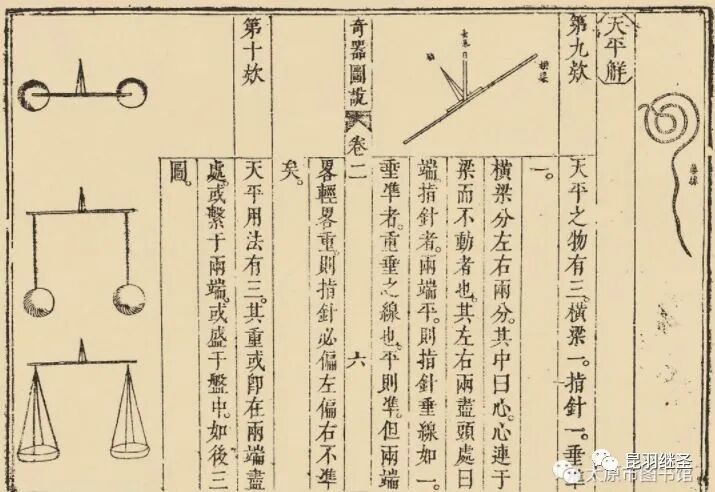 天平解
第九欵
橫梁
天平之物有三。橫梁一。指針一。垂準
一。
橫梁分左右兩分。其中曰心。心連于
梁而不動者也。其左右兩盡頭處曰
端。指針者。兩端平。則指針垂線如一。
垂準者。重垂之線也。平則準。但兩端
奇器圖說 卷二 六
畧輕畧重。則指針必偏左偏右不準
矣。
第十欵
天平用法有三。其重或卽在兩端盡
處。或繫于兩端。或盛于盤中。如後三
圖。
昆羽继圣
太原市图书馆